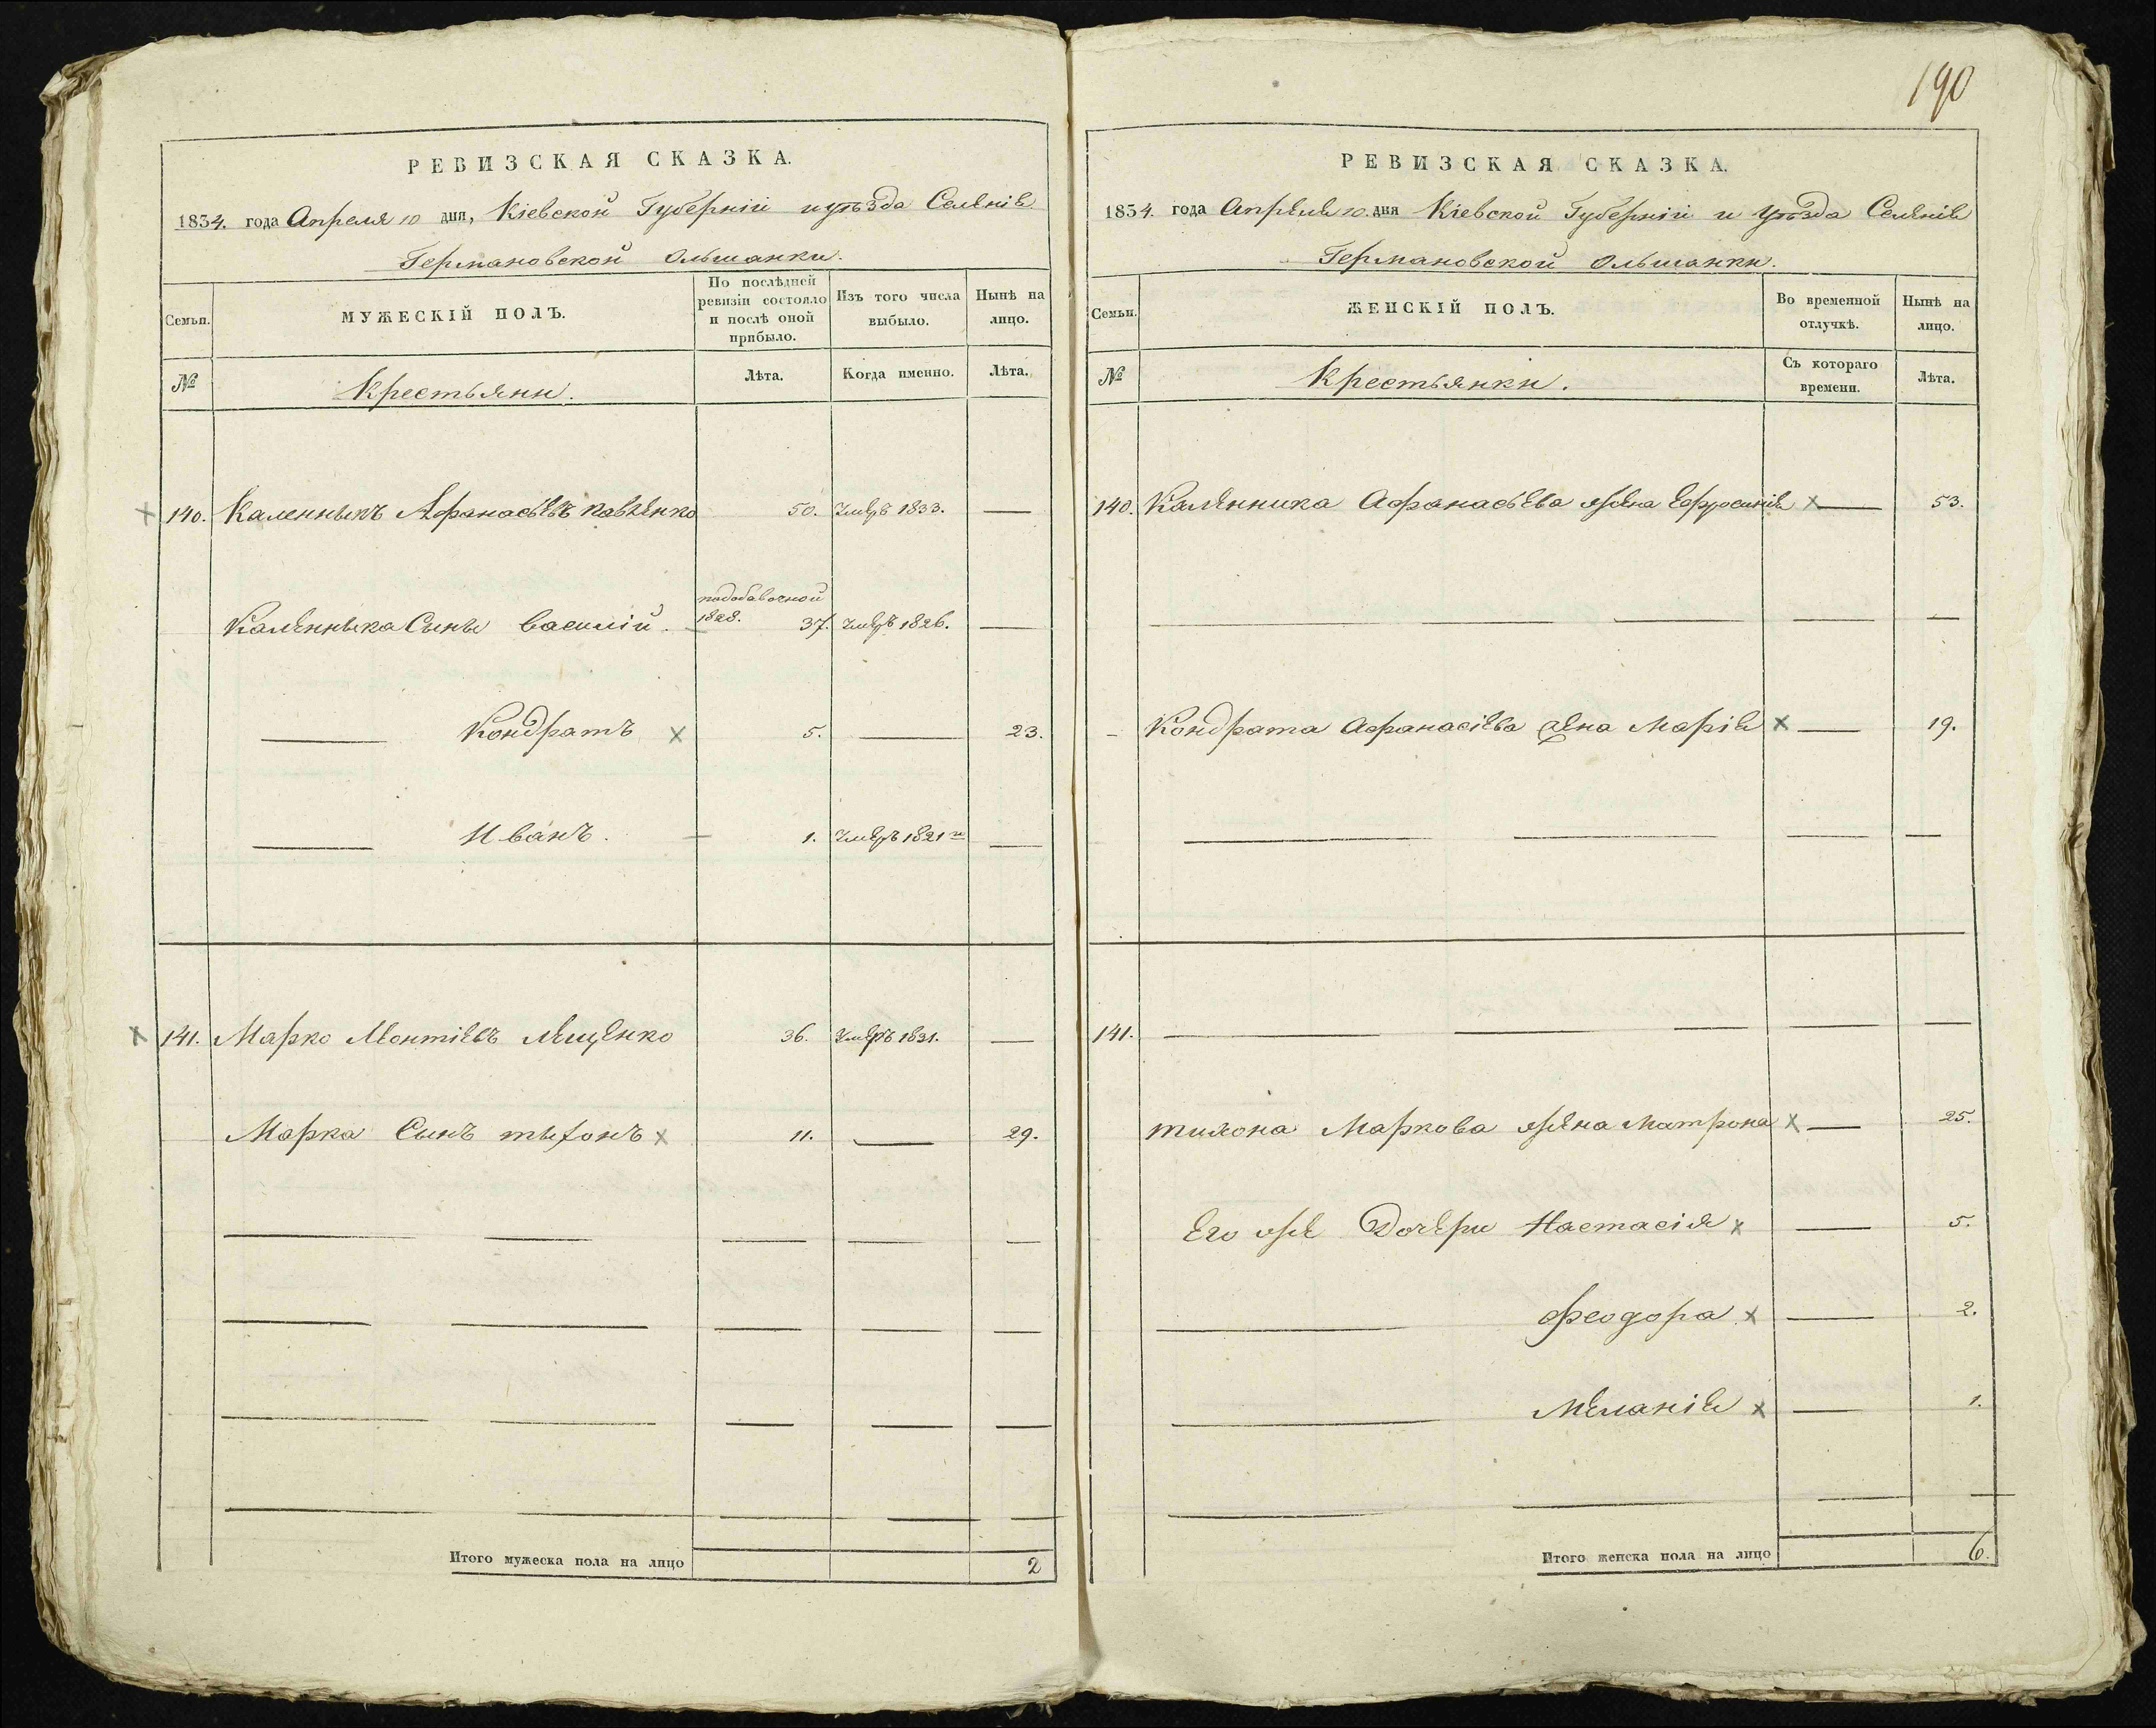 190
РЕВИЗСКАЯ СКАЗКА.
1834. года Апреля 10 дня, Кіевской Губерніи и уѣзда Селенія
Германовской Ольшанки.
Семьи.
МУЖЕСКІЙ ПОЛЪ.
По послѣдней
ревизіи состояло
и послѣ оной
прибыло.
Изъ того числа
выбыло.
Нынѣ на
лицо.
№
Крестьяни.
Лѣта.
Когда именно.
Лѣта.
140. Каленныкъ Афанасіевъ 50. Умеръ 1833. —
Каленныка Сыны Василій. подобавочной 1828. 37. Умеръ 1826. —
— Кондратъ х 5. — 23.
— Иванъ. 1. Умеръ 1821 —
141. Марко Леонтіевъ Лещенко 36. Умеръ 1831. —
Марка Сынъ тыхонъ х 11. — 29.
Итого мужеска пола на лицо 2
РЕВИЗСКАЯ СКАЗКА.
1834. года Апреля 10. дня Кіевской Губерніи и Уѣзда Селенія
Германовской Ольшанки.
Семьи.
ЖЕНСКІЙ ПОЛЪ.
Во временной
отлучкѣ.
Нынѣ на
лицо.
№
Крестьянки.
Съ котораго
времени.
Лѣта.
140. Каленника Афанасіева жена Ефросинія х — 53.
Кондрата Афанасіева жена Марія х — 19.
141.
тихона Маркова жена Матрона х — 25.
Его же Дочери Настасія х — 5.
— Феодора х — 2.
— Меланія х — 1.
Итого женска пола на лицо 6.